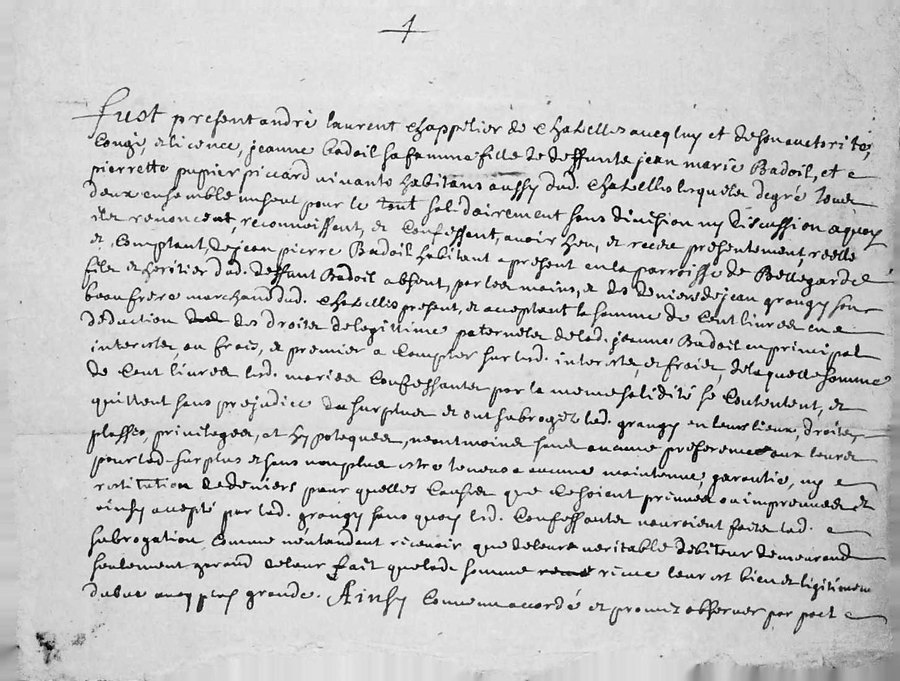 1
fust present andré laurent chappelier de chatellus avecq luy et de son auctorité,
congé, et licence, jeanne badoil sa famme fille de deffunts jean marie Badoil, et
pierrette pupier piccard vivants habitans aussy dud. chatellus lesquels de gré tous
deux ensemble unsent pour le tout solidairement sans division ny discussion a quoy
ils renoncent, reconnoissent, et confessent, avoir heu, et receu presentement reelle
et comptant, de jean pierre Badoil habitant a present en la parroisse de Bellegarde
fils et heritier dud. deffunt Badoil absent, par les mains, et des deniers de jean grangy son
beaufrere marchand dud. chatellus present, et acceptant la somme de cent livres en
deduction des droits de legittime paternels de lad. jeanne Badoil en principal
interests, ou frais, et premier a compter sur lesd. interests, et frais, de laquelle somme
de cent livres lesd. maries confessants par la meme solidité se contentent, et
quittent sans prejudice du surplus et ont subrogé led. grangy en leurs lieux, droits,
plasses, privileges, et hypoteques, neantmoins sans aucune preference aux leurs
pour led. surplus et sans non plus estre tenus a aucune maintenue, garantie, ny
restitution de deniers pour quelles causes que ce soient prinses ou impreveues et
ainsy accepté par led. grangy sans quoy lesd. confessants nauroient faite lad.
subrogation comme nentendant recevoir que de leurs veritable debiteur demeurand
seulement garand de leur fait que lad. somme leur est bien et legitimem
dube avec plus grande. Ainsy convenu accordé et promis observer par pact